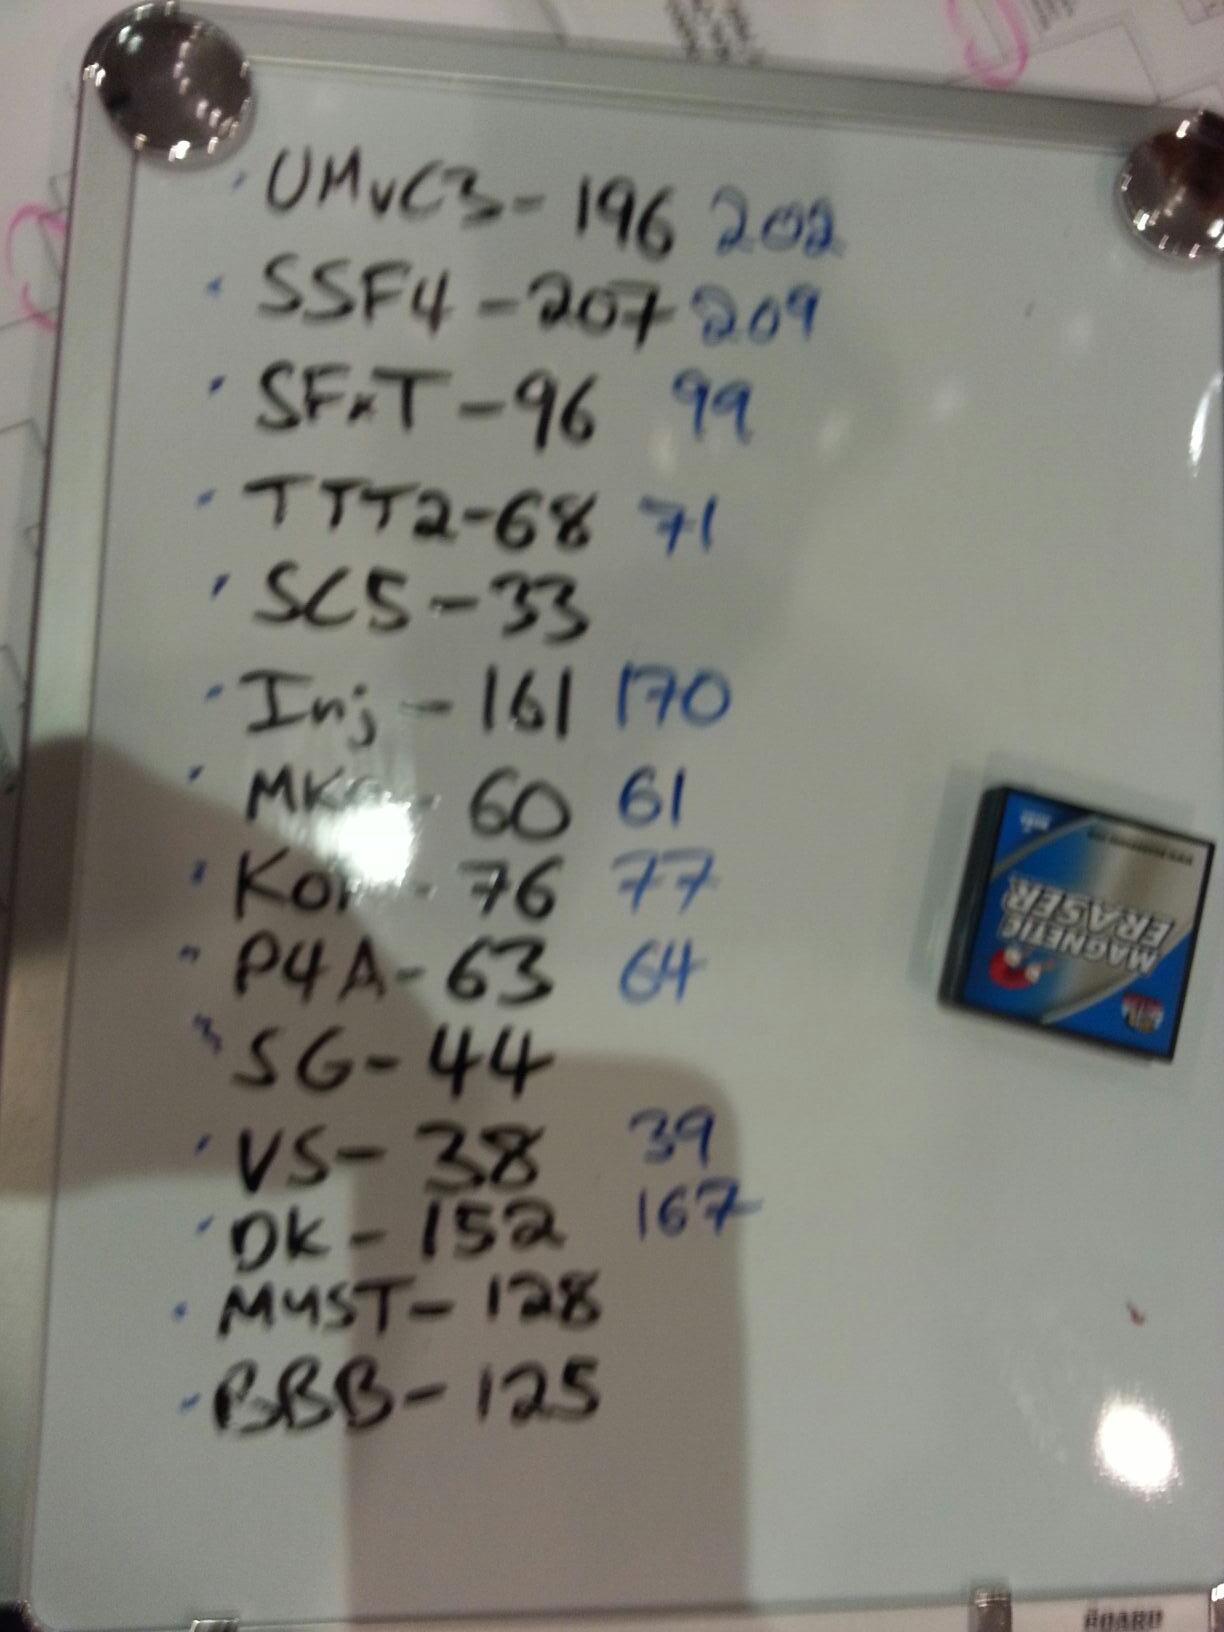 UMvC3 - 196 202
SSF4 - 207 209
SFxT - 96 99
TTT2 - 68 71
SC5 - 33
Inj - 161 170
60 61
76 77
P4A - 63 64
SG - 44
VS - 38 39
DK - 152 167
MYST - 128
BBB - 125
MAGNETIC
ERASER
BOARD